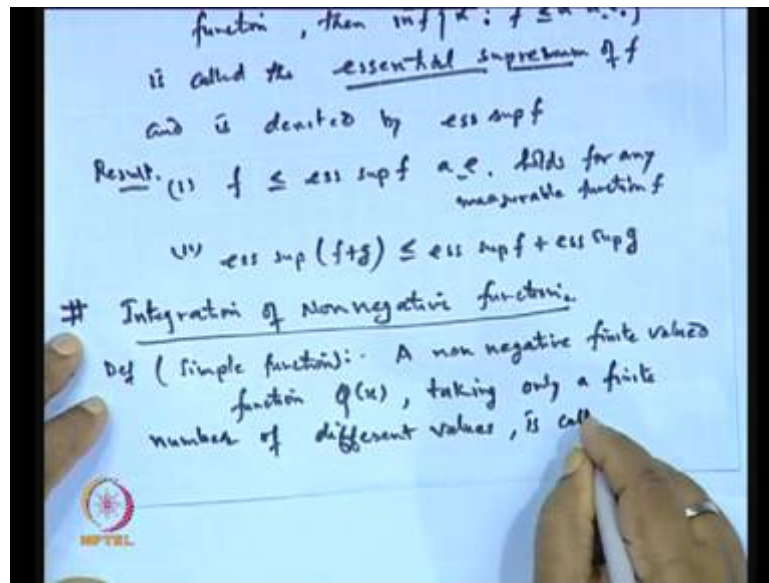 function, then inf{α : f ≤ α a.e.}
is called the essential supremum of f
and is denoted by ess sup f
Result. (i) f ≤ ess sup f a.e. holds for any
measurable function f
(ii) ess sup (f+g) ≤ ess sup f + ess sup g
# Integration of Nonnegative function.
Def (Simple function):- A non negative finite valued
function φ(x), taking only a finite
number of different values, is call
NPTEL